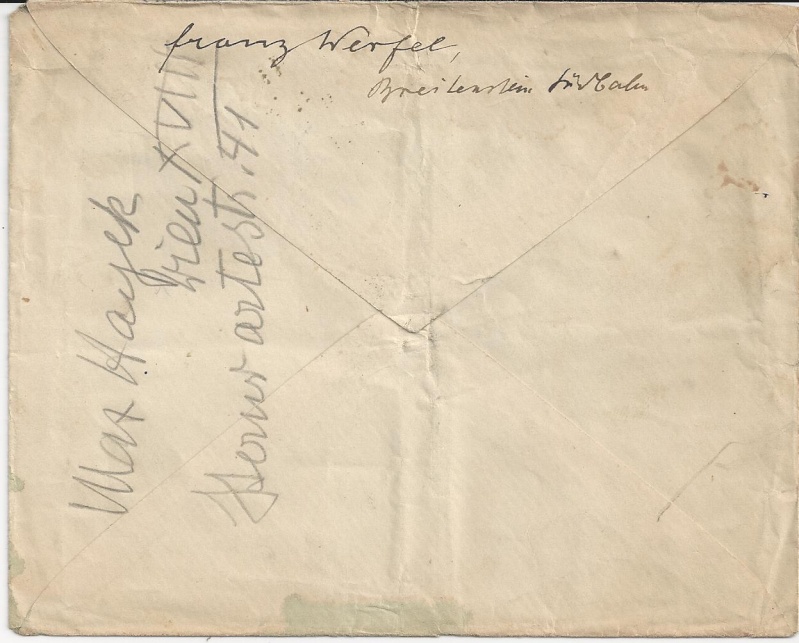 Franz Werfel,
Breitenstein Südbahn
Max Hayek
Wien XVIII
Sternwartestr. 41